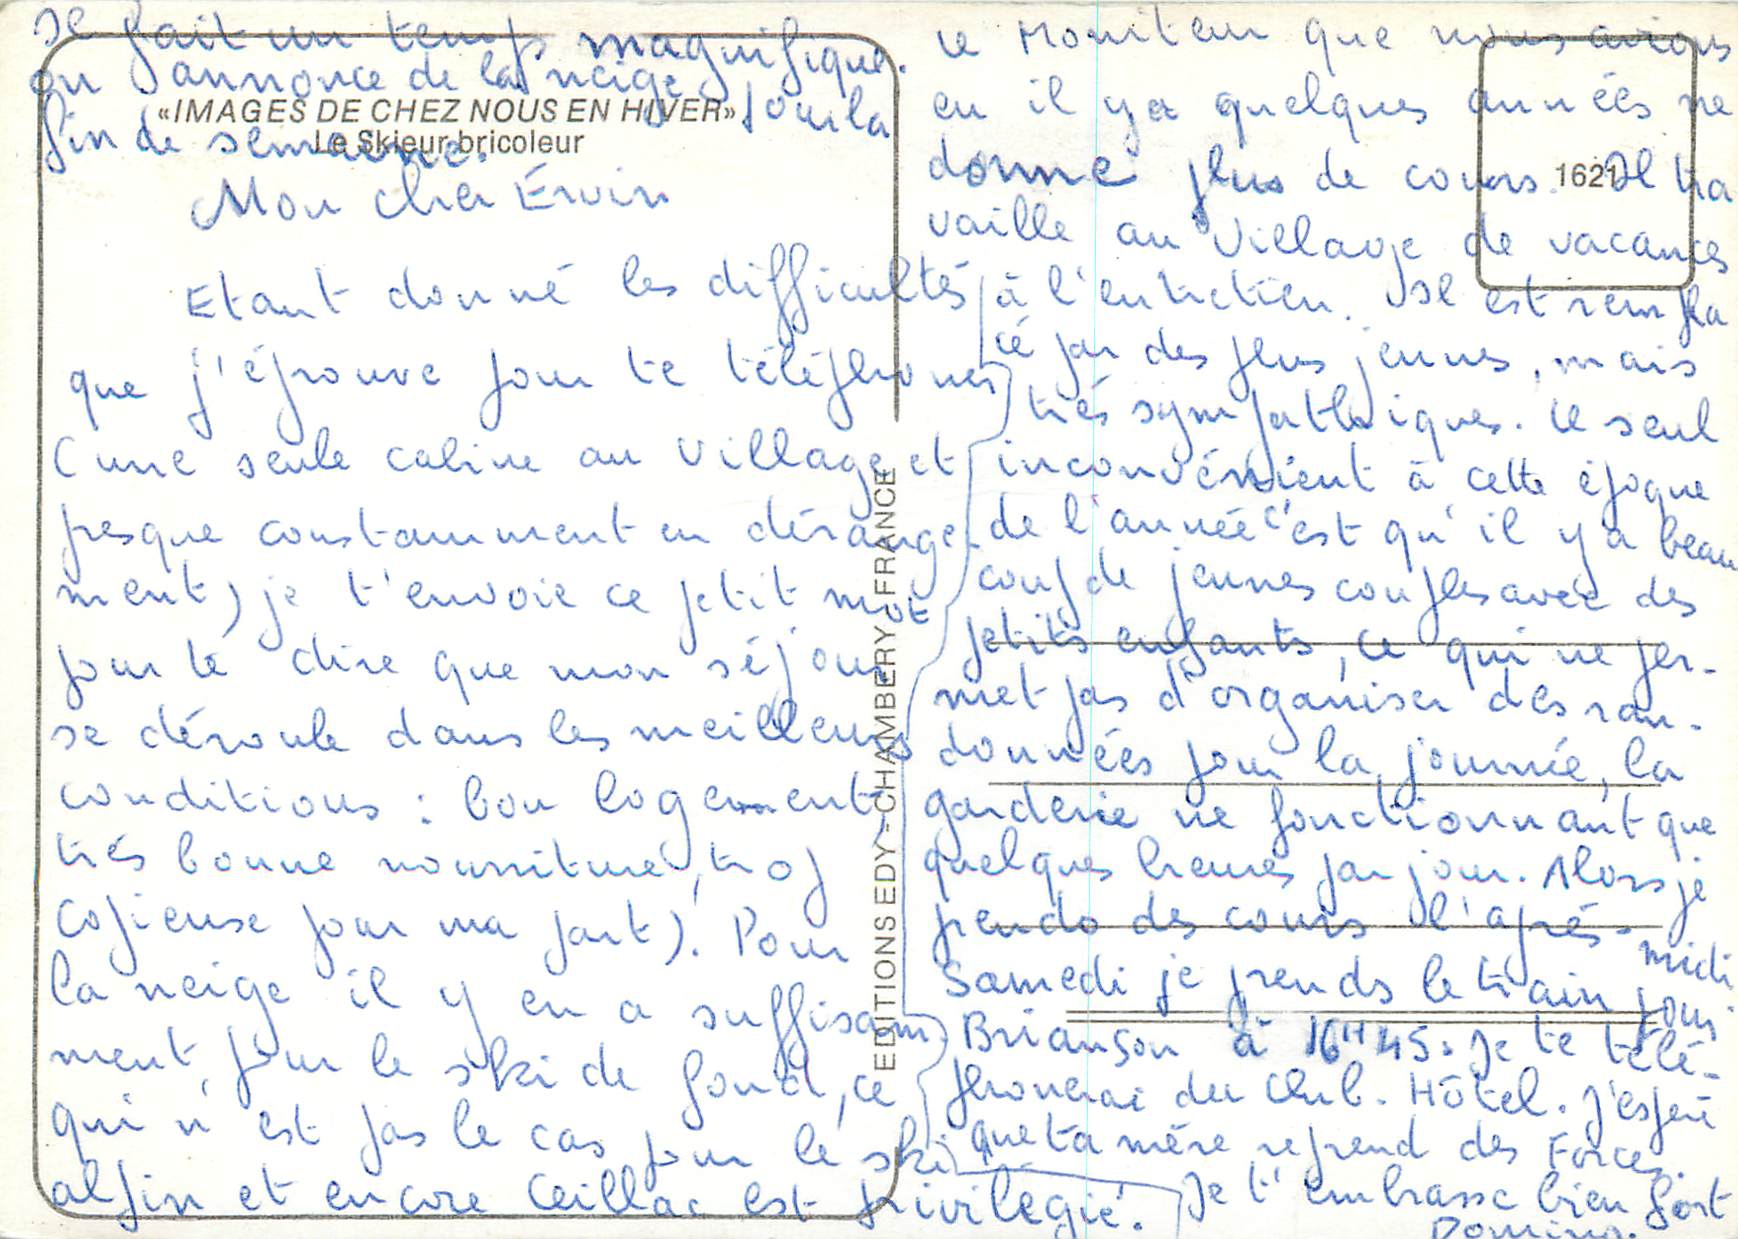 Il fait un temps magnifique.
on annonce de la neige pour la
fin de semaine.
«IMAGES DE CHEZ NOUS EN HIVER»
Le Skieur bricoleur
Mon cher Érvin
Etant donné les difficultés
que j'éprouve pour te téléphoner
(une seule cabine au Village et
presque constamment en dérange-
ment) je t'envoie ce petit mot
pour te dire que mon séjour
se déroule dans les meilleurs
conditions : bon logement
très bonne nourriture, trop
copieuse pour ma part). Pour
la neige il y en a suffisam
ment pour le ski de fond, ce
qui n'est pas le cas pour le ski
alpin et encore Ceillac est privilégié.
EDITIONS EDY - CHAMBERY - FRANCE
1621
le Moniteur que nous avions
eu il y a quelques années ne
donne plus de cours. Il tra
vaille au Village de vacances
à l'entretien. Il est rempla
cé par des plus jeunes, mais
très sympathiques. Le seul
inconvénient à cette époque
de l'année c'est qu'il y a beau
coup de jeunes couples avec des
petits enfants, ce qui ne per-
met pas d'organiser des ran-
données pour la journée, la
garderie ne fonctionnant que
quelques heures par jour. Alors je
prends des cours l'après-
midi
Samedi je prends le train pour
Briançon à 16H45. Je te télé-
phonerai du Club-Hôtel. J'espère
que ta mère reprend des Forces.
Je t'embrasse bien fort